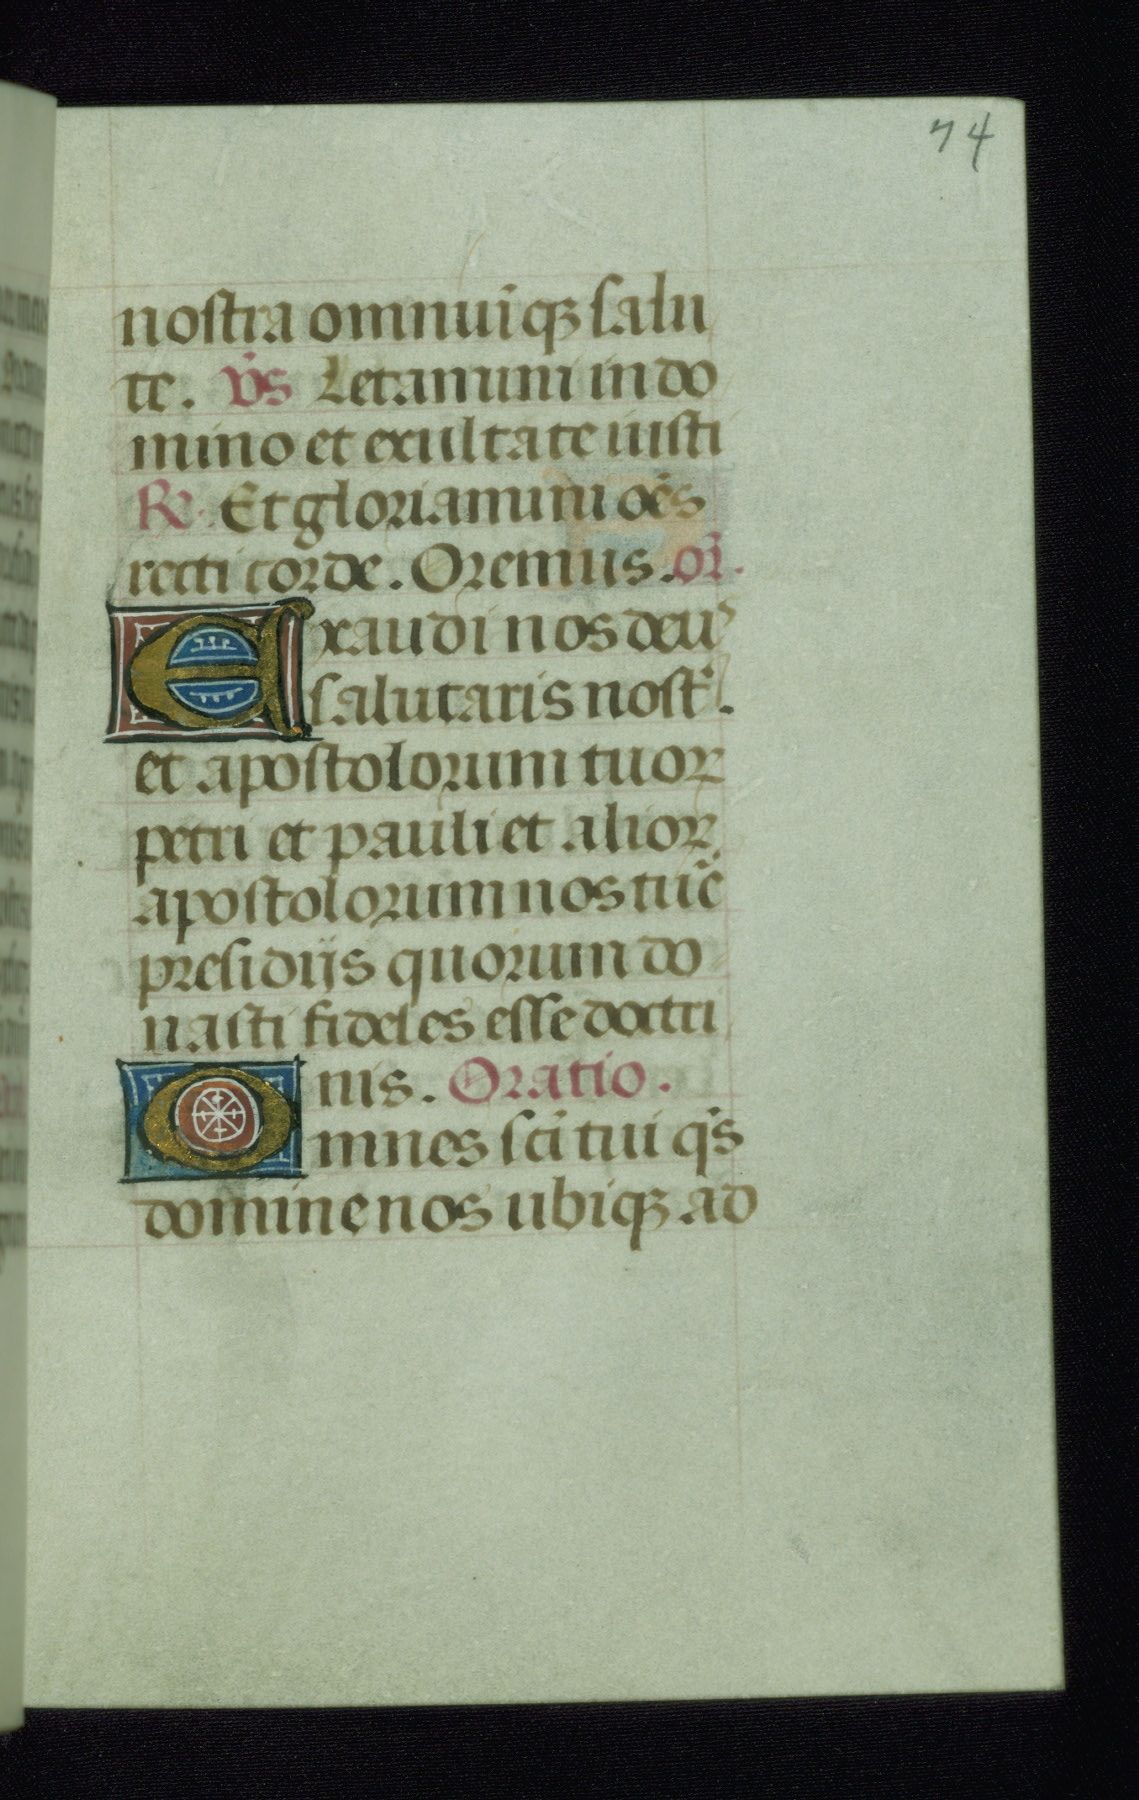 74
nostra omniūqꝫ salu
te. v̄s Letamini in do
mino et exultate iusti
R̄e. Et gloriamini oēs
recti corde. Oremus. or̄.
Exaudi nos deuꝰ
salutaris nost̄.
et apostolorum tuoꝝ
petri et pauli et alioꝝ
apostolorum nos tue̅
presidijs quorum do
nasti fideles esse doctri
nis. Oratio.
Omnes sc̄i tui q̄s
domine nos ubiqꝫ ad